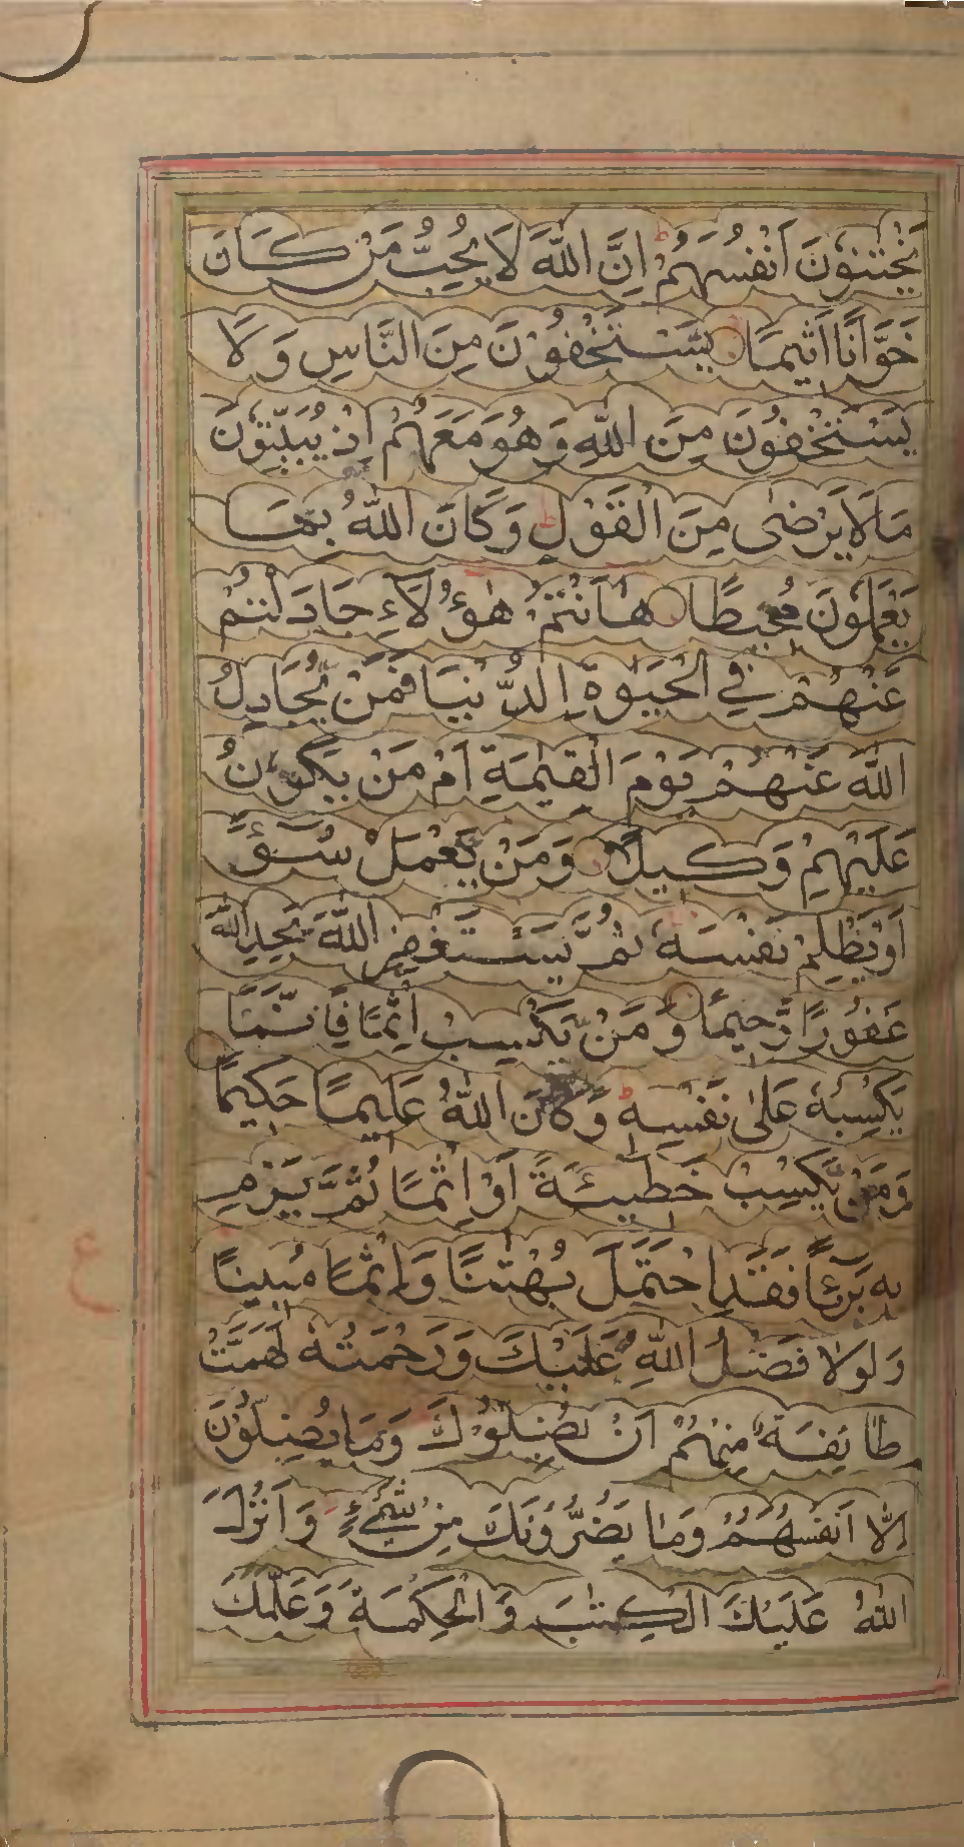 يَخْتَانُوْنَ اَنْفُسَهُمْ ؕ اِنَّ اللّٰهَ لَا يُحِبُّ مَنْ كَانَ
خَوَّانًا اَثِيْمًا يَّسْتَخْفُوْنَ مِنَ النَّاسِ وَلَا
يَسْتَخْفُوْنَ مِنَ اللّٰهِ وَهُوَ مَعَهُمْ اِذْ يُبَيِّتُوْنَ
مَا لَا يَرْضٰى مِنَ الْقَوْلِ ؕ وَكَانَ اللّٰهُ بِمَا
يَعْمَلُوْنَ مُحِيْطًا هٰۤاَنْتُمْ هٰۤؤُلَآءِ جَادَلْتُمْ
عَنْهُمْ فِي الْحَيٰوةِ الدُّنْيَا فَمَنْ يُّجَادِلُ
اللّٰهَ عَنْهُمْ يَوْمَ الْقِيٰمَةِ اَمْ مَّنْ يَّكُوْنُ
عَلَيْهِمْ وَكِيْلًا وَمَنْ يَّعْمَلْ سُوْٓءًا
اَوْ يَظْلِمْ نَفْسَهٗ ثُمَّ يَسْتَغْفِرِ اللّٰهَ يَجِدِ اللّٰهَ
غَفُوْرًا رَّحِيْمًا وَمَنْ يَّكْسِبْ اِثْمًا فَاِنَّمَا
يَكْسِبُهٗ عَلٰى نَفْسِهٖ ؕ وَكَانَ اللّٰهُ عَلِيْمًا حَكِيْمًا
وَمَنْ يَّكْسِبْ خَطِيْٓئَةً اَوْ اِثْمًا ثُمَّ يَرْمِ
بِهٖ بَرِيْٓئًا فَقَدِ احْتَمَلَ بُهْتَانًا وَّاِثْمًا مُّبِيْنًا
وَلَوْلَا فَضْلُ اللّٰهِ عَلَيْكَ وَرَحْمَتُهٗ لَهَمَّتْ
طَآئِفَةٌ مِّنْهُمْ اَنْ يُّضِلُّوْكَ وَمَا يُضِلُّوْنَ
اِلَّا اَنْفُسَهُمْ وَمَا يَضُرُّوْنَكَ مِنْ شَيْءٍ وَاَنْزَلَ
اللّٰهُ عَلَيْكَ الْكِتٰبَ وَالْحِكْمَةَ وَعَلَّمَكَ
ع